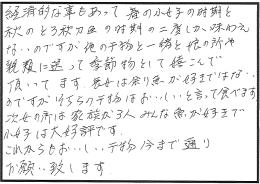 経済的な事もあって 春の小女子の時期と
秋のとろ秋刀魚の時期の二度しか味わえ
ないのですが他の干物と一緒と娘の所や
親類に送って季節物として喜こんで
頂いてます。長女は余り魚が好きではない
のですがそちらの干物はおいしいと言って食べます。
次女の所は家族が3人みんな魚が好きで
小女子は大好評です。
これからもおいしい干物今まで通り
お願い致します